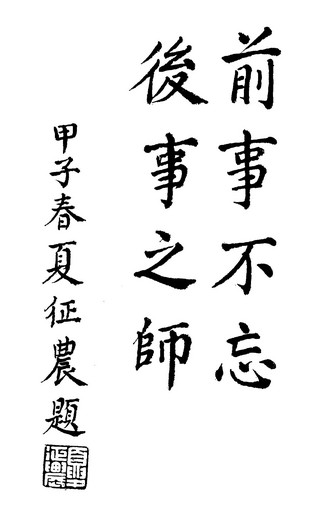 前事不忘
後事之師
甲子春夏征農題